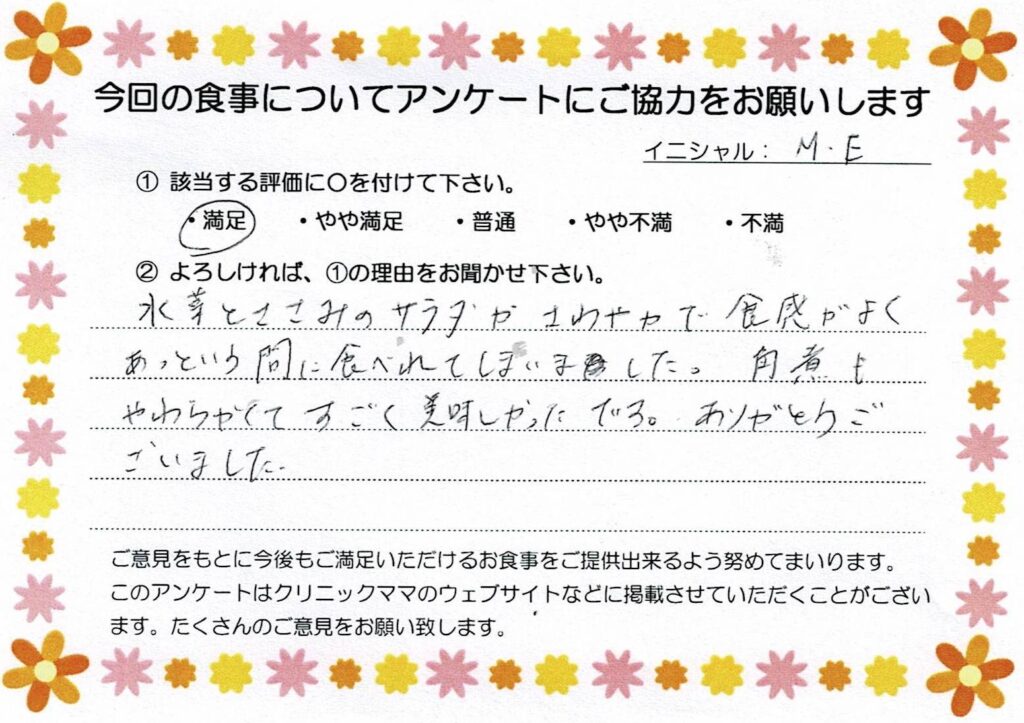 今回の食事についてアンケートにご協力をお願いします
イニシャル： M.E
① 該当する評価に〇を付けて下さい。
・満足 ・やや満足 ・普通 ・やや不満 ・不満
② よろしければ、①の理由をお聞かせ下さい。
水菜とささみのサラダがさわやかで食感がよく
あっという間に食べれてしまいました。角煮も
やわらかくてすごく美味しかったです。ありがとうご
ございました。
ご意見をもとに今後もご満足いただけるお食事をご提供出来るよう努めてまいります。
このアンケートはクリニックママのウェブサイトなどに掲載させていただくことがござい
ます。たくさんのご意見をお願い致します。